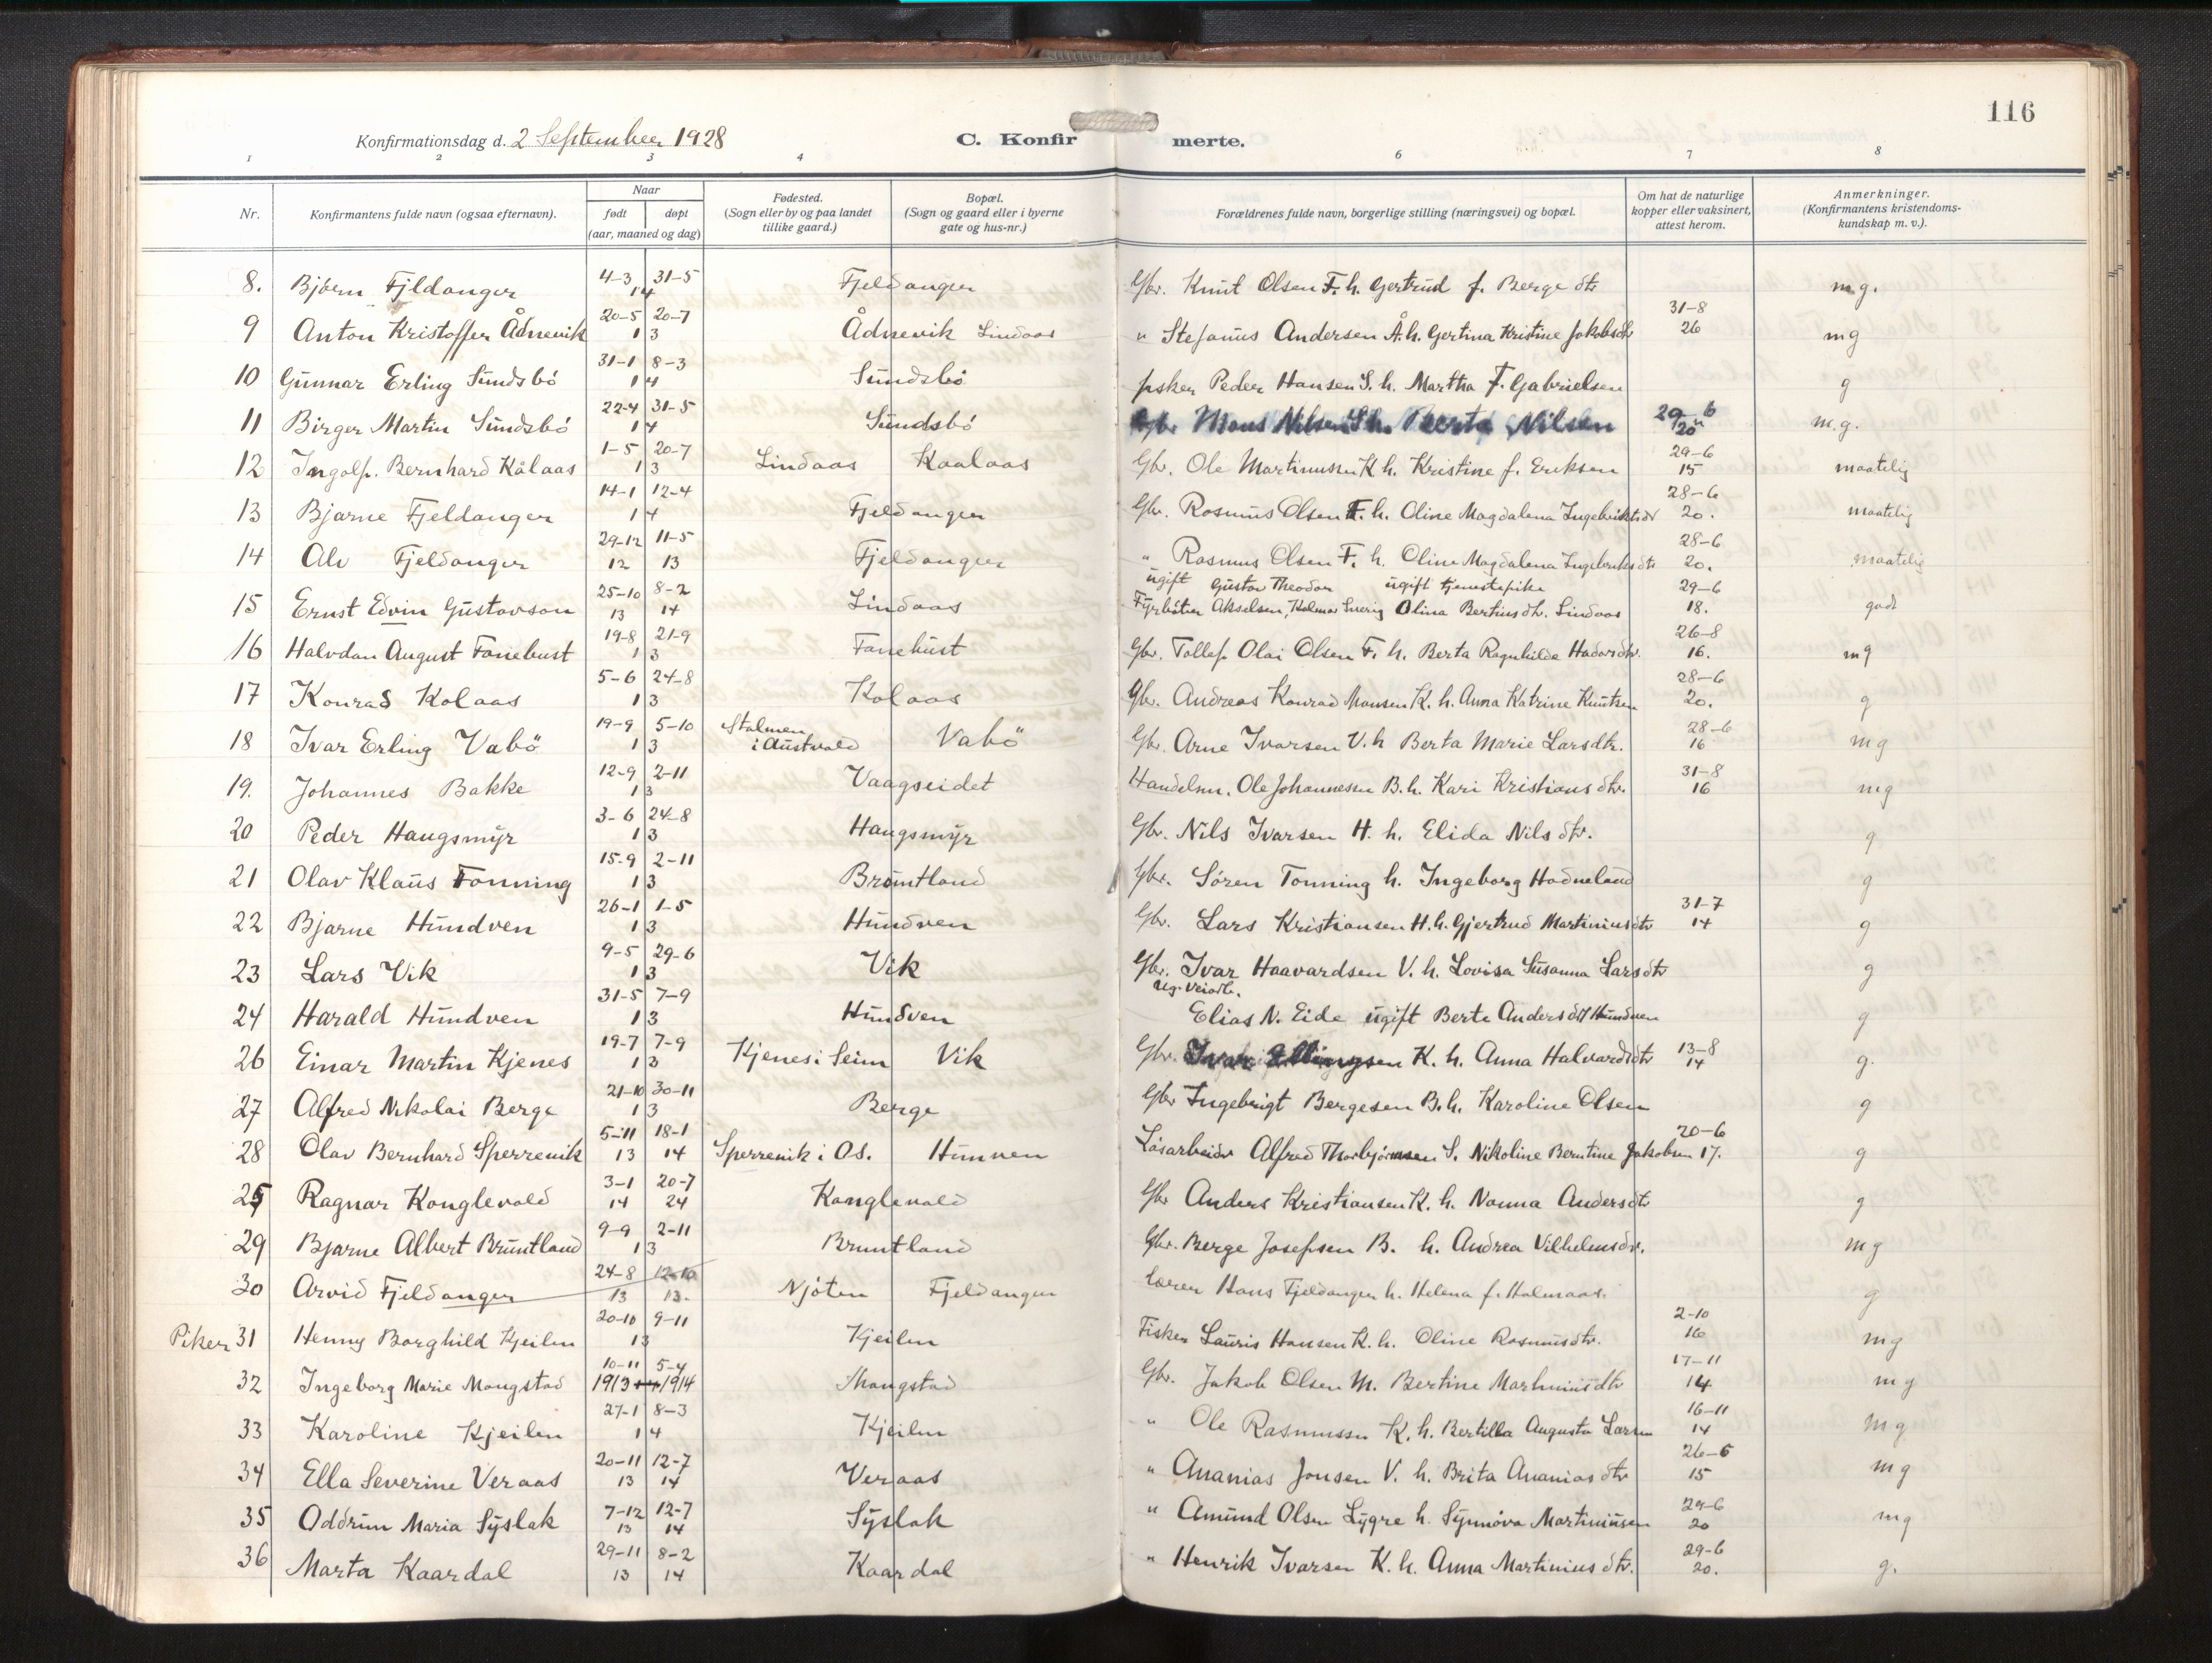 116
Konfirmationsdag d. 2 September 1928 C. Konfirmerte.
1 2 3 4 6 7 8
Nr. Konfirmantens fulde navn (ogsaa efternavn). Naar født døpt (aar, maaned og dag) Fødested. (Sogn eller by og paa landet tillike gaard.) Bopæl. (Sogn og gaard eller i byerne gate og hus-nr.) Forældrenes fulde navn, borgerlige stilling (næringsvei) og bopæl. Om hat de naturlige kopper eller vaksinert, attest herom. Anmerkninger. (Konfirmantens kristendoms-kundskap m. v.).
8. Bjørn Fjldanger 4-3 31-5 14 Fjeldanger Gbr. Knut Olsen F. h. Gertrud f. Berge dtr m.g.
9 Anton Kristoffer Ådnevik 20-5 20-7 13 Ådnevik Lindaas " Stefanus Andersen Å. h. Gertina Kristine Jakobsdtr 31-8 26 mg
10 Gunnar Erling Sundsbö 31-1 8-3 14 Sundsbö fisker Peder Hansen S. h. Martha F. Gabrielsen g
11 Birger Martin Sundsbö 22-4 31-5 14 Sundsbö Gbr Mons Nilsen S h. Berta Nilsen 29-6 20 m.g.
12 Ingolf. Bernhard Kålaas 1-5 20-7 13 Lindaas Kaalaas Gbr. Ole Martinussen K h. Kristine f. Eriksen 29-6 15 maatelig
13 Bjarne Fjeldanger 14-1 12-4 14 Fjeldanger Gbr. Rasmus Olsen F. h. Oline Magdalena Ingebriktsdtr 28-6 20. maatelig
14 Alv Fjeldanger 29-12 11-5 12 13 Fjeldanger " Rasmus Olsen F. h. Oline Magdalena Ingebriktsdtr 28-6 20. maatelig
15 Ernst Edvin Gustavson 25-10 8-2 13 14 Lindaas ugift Gustav Theodor ugift tjenestepike Fyrbøter Akselsen, Kalmar Sverig Olina Bertinsdtr. Lindaas 29-6 18. godt
16 Halvdan August Fanebust 19-8 21-9 13 Fanebust Gbr. Tollef Olai Olsen F. h. Berta Ragnhilde Hadorsdtr. 26-8 16. mg
17 Konrad Kolaas 5-6 24-8 13 Kolaas Gbr. Andreas Konrad Monsen K. h. Anna Katrine Knutsen 28-6 20. g
18 Ivar Erling Vabö 19-9 5-10 13 Stalmen i Austvold Vabö Gbr. Arne Ivarsen V. h Berta Marie Larsdtr. 28-6 16 mg
19. Johannes Bakke 12-9 2-11 13 Vaagseidet Handelsm. Ole Johannessen B. h. Kari Kristians dtr. 31-8 16 mg
20 Peder Haugsmyr 3-6 24-8 13 Haugsmyr Gbr. Nils Ivarsen H. h. Elida Nils dtr. g
21 Olav Klaus Tonning 15-9 2-11 13 Bruntland Gbr. Sören Tonning h. Ingeborg Hodneland g
22 Bjarne Hundven 26-1 1-5 13 Hundven Gbr. Lars Kristiansen H. h. Gjertrud Martinusdtr 31-7 14 g
23 Lars Vik 9-5 29-6 13 Vik Gbr. Ivar Haavardsen V. h. Lovisa Susanna Larsdtr g
24 Harald Hundven 31-5 7-9 13 Hundven ug. veiarb. Elias N. Eide ugift Berte Andersdtr Hundven g
26 Einar Martin Kjenes 19-7 7-9 13 Kjenes i Seim Vik Gbr. Ivar Ellingsen K. h. Anna Halvardsdtr 13-8 14 g.
27 Alfred Nikolai Berge 21-10 30-11 13 Berge Gbr Ingebrigt Bergesen B. h. Karoline Olsen g
28 Olav Bernhard Sperrevik 5-11 18-1 13 14 Sperrevik i Os. Hunven Løsarbeider Alfred Thorbjørnsen S. Nikoline Berntine Jakobsen 20-6 17. g
25 Ragnar Konglevold 3-1 20-7 14 24 Konglevold Gbr Anders Kristiansen K. h. Nanna Andersdtr g
29 Bjarne Albert Bruntland 9-9 2-11 13 Bruntland Gbr. Berge Josefsen B. h. Andrea Vilhelmsdtr. mg
30 Arvid Fjeldanger 24-8 12-10 13 13. Njöten Fjeldanger lærer Hans Fjeldanger h. Helena f. Holmaas. g
Piker 31 Henny Borghild Kjeilen 20-10 9-11 13 Kjeilen Fisker Lauris Hansen K. h. Oline Rasmusdtr. 2-10 16 mg
32 Ingeborg Marie Mongstad 10-11 5-4 1913 1914 Mongstad Gbr. Jakob Olsen M. Bertine Martinusdtr 17-11 14 mg
33 Karoline Kjeilen 27-1 8-3 14 Kjeilen " Ole Rasmussen K. h. Bertilla Augusta Larsen 16-11 14 mg
34 Ella Severine Veraas 20-11 12-7 13 14 Veraas " Ananias Jonsen V. h. Brita Ananiasdtr 26-6 15 mg
35 Oddrun Maria Syslak 7-12 12-7 13 14 Syslak " Amund Olsen Lygre h. Synnöva Martinussen 29-6 20 mg
36 Marta Kaardal 29-11 8-2 13 14 Kaardal " Henrik Ivarsen K. h. Anna Martinius dtr. 29-6 20. g.